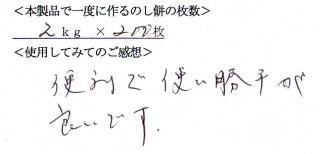 ＜本製品で一度に作るのし餅の枚数＞
2kg×200枚
＜使用してみてのご感想＞
便利で使い勝手が
良いです.